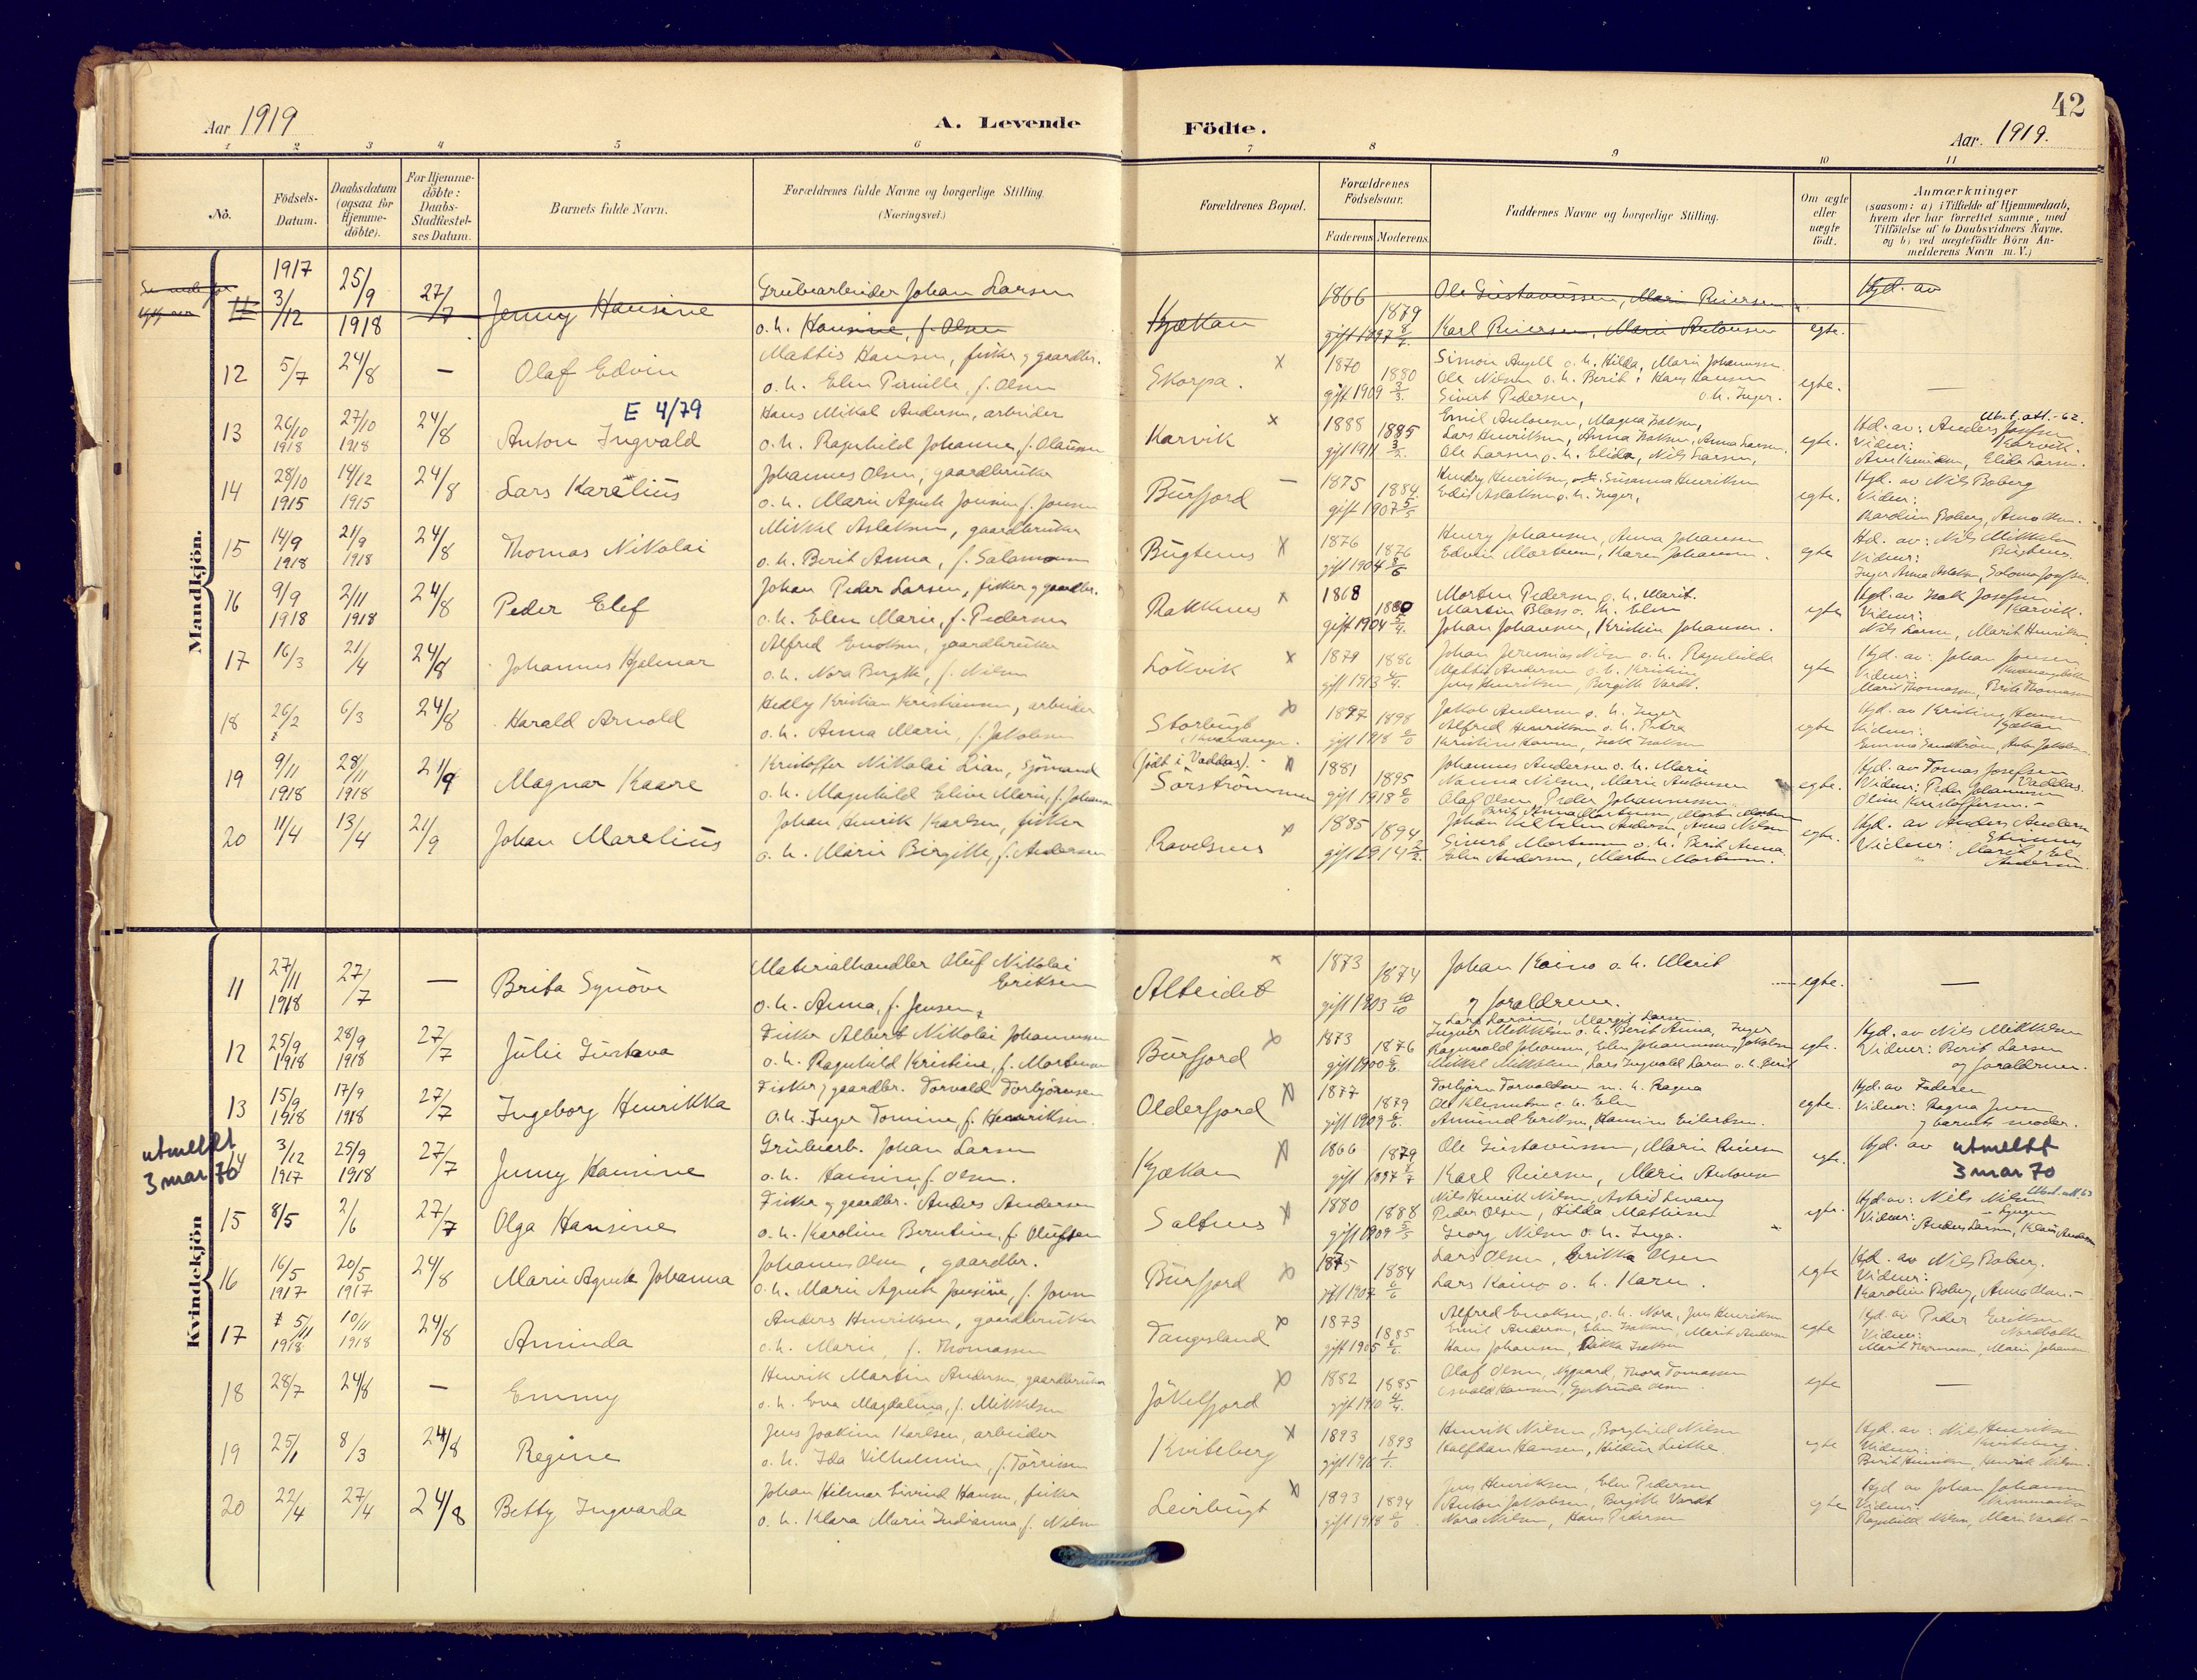 42
Aar 1919
A. Levende
Födte.
Aar. 1919.
1 2 3 4 5 6 7 8 9 10 11
No.
Födsels-
Datum.
Daabsdatum
(ogsaa for
Hjemme-
döbte).
For Hjemme-
döbte:
Daabs-
Stadfæstel-
ses Datum.
Barnets fulde Navn.
Forældrenes fulde Navne og borgerlige Stilling.
(Næringsvei.)
Forældrenes Bopæl.
Forældrenes
Födselsaar.
Faderens Moderens
Faddernes Navne og borgerlige Stilling.
Om ægte
eller
uægte
födt.
Anmærkninger
(saasom: a) i Tilfælde af Hjemmedaab,
hvem der har forrettet samme, med
Tilföielse af to Daabsvidners Navne,
og b) ved uægtefödte Börn An-
melderens Navn m. V.)
Mandkjön.
11 1917 3/12 25/9 1918 27/7 Jenny Hansine
Grubearbeider Johan Larsen
o.h. Hansine, f. Olsen
Kjækan 1866 1879 gift 1897
Ole Gustavussen, Marie Reiersen
Karl Reiersen, Marie Antonsen
egte. Hjd. av
12 5/7 24/8 — Olaf Edvin
Mattis Hansen, fisker og gaardbr.
o.h. Elen Pernille, f. Olsen
Skorpa. x 1870 1880 gift 1909 3/3.
Simon Angell o.h. Hilda, Marie Johannessen.
Ole Nilsen o.h. Berit, Hans Hansen
Sivert Pedersen, o.h. Inger.
egte. —
13 26/10 1918 27/10 1918 24/8 E 4/79
Anton Ingvald
Hans Mikal Andersen, arbeider
o.h. Ragnhild Johanna, f. Olaussen
Karvik x 1888 1885 gift 1911 3/2.
Emil Antonsen, Magna Isaksen,
Lars Henriksen, Anna Isaksen, Anna Larsen
Ole Larsen o.h. Elida, Nils Larsen,
egte. Utst. att.-62.
Hd. av: Anders Josefsen
Karvik.
Vidner:
Elida Larsen.
14 28/10 1915 14/12 1915 24/8 Lars Karelius
Johannes Olsen, gaardbruker
o.h. Marie Agnete Jonsine f. Jonsen
Burfjord — 1875 1884. gift 1907 5/5
Hendry Henriksen, Susanna Henriksen
Edis Aslaksen o.h. Inger,
egte. Hjd. av Nils Boberg
Vidner:
Karoline Boberg, Arno Olsen.-
15 14/9 1918 21/9 1918 24/8 Thomas Nikolai
Mikkel Aslaksen, gaardbruker
o.h. Berit Anna, f. Salamonsen
Bugtenes X 1876 1876 gift 1904 8/6
Henry Johansen, Anna Johansen
Edvin Mortensen, Karen Johansen.
egte Hd. av: Nils Mikkelsen
Bugtenes
Vidner:
Inger Anna Aslaksen, Salomon Josefsen.
16 9/9 1918 2/11 1918 24/8 Peder Elef
Johan Peder Larsen, fisker og gaardbr.
o.h. Elen Marie, f. Pedersen
Rakkenes x 1868 1880 gift 1904 5/4.
Morten Pedersen o.h. Marit.
Martin Blass o.h. Elen
Johan Johansen, Kristine Johansen.
egte Hjd. av Isak Josefsen
Karvik.
Vidner:
Nils Larsen, Marit Henriksen
17 16/3 21/4 24/8 Johannes Hjelmar
Alfred Enoksen, gaardbruker
o.h. Nora Bergitte, f. Nilsen
Lökvik x 1879 1886 gift 1913
Johan Jeremias Nilsen o.h. Ragnhilda
Mattis Andersen o.h. Kristine
Jens Henriksen, Birgitte Vardt.
egte Hjd. av: Johan Jensen
Vidner:
Marit Thomassen, Berit Thomassen
18 26/2 6/3 24/8 Harald Arnold
Hedly Kristian Kristiansen, arbeider
o.h. Anna Marie, f. Jakobsen
Storbugt
Kvænangen. x 1897 1898 gift 1918
Jakob Andersen o.h. Inger
Alfred Henriksen o.h. Petra
Kristine Hansen, Isak Isaksen
egte Hjd. av Kristine Hansen
Kjækan
Vidner:
Emma Sandström, Anton Jakobsen
19 9/11 1918 28/11 1918 21/9 Magnar Kaare
Kristoffer Nikolai Lian, sjömand
o.h. Magnhild Eline Marie, f. Johansen
(födt i Vaddas). - Sörströmmen 1881 1895 gift 1918
Johannes Andersen o.h. Marie
Nanna Nilsen, Marie Antonsen
Olaf Olsen, Peder Johannessen
egte. Hjd. av Tomas Josefsen
Vaddas.
Vidner: Peder Johannessen
Oline Kristoffersen.-
20 11/4 13/4 21/9 Johan Marelius
Johan Henrik Karlsen, fisker
o.h. Marie Birgitte, f. Andersen
Ravelsnes x 1885 1894 gift 1914 2/2.
Berit Anna Mortensen, Morten Mortensen
Johan Vilhelm Andersen, Anna Nilsen
Sivert Mortensen o.h. Berit Anna.
Elen Andersen, Martin Mortensen.
egte. Hjd. av Anders Andersen
Vidner: Marit, Eli
Andersen.
Kvindekjön
11 27/11 1918 27/7 — Brita Synöve
Materialhandler Oluf Nikolai
Eriksen
o.h. Anna, f. Jensen
Alteidet x 1873 1874 gift 1903 10/10
Johan Kaino o.h. Marit
og foraldrene.
egte. —
12 25/9 1918 28/9 1918 27/7 Julie Gustava
Fisker Albert Nikolai Johannessen
o.h. Ragnhild Kristine, f. Mortensen
Burfjord x 1873 1876 gift 1900 6/6.
Lars Larsen, Margit Larsen.
Ingvar Mikkelsen o.h. Berit Anna, Inger
Ragnvald Johansen, Elen Johannessen, Jakobsen
Mikkel Mikkelsen, Lars Ingvald Larsen o.h. Berit
egte. Hjd. av Nils Mikkelsen
Vidner: Berit Larsen
og foraldrene.
13 15/9 1918 17/9 1918 27/7 Ingeborg Henrikka
Fisker og gaardbr. Torvald Torbjörnsen
o.h. Inger Tomine, f. Henriksen.
Olderfjord x 1877 1879 gift 1909 6/6.
Torbjörn Torvaldsen m. h. Ragna
Ole Klemetsen o.h. Elen
Amund Eriksen, Hansine Eilertsen.
egte. Hjd. av Faderen
Vidner: Ragna Jensen
og barnets moder.
utmeldt
3 mar 70
14 3/12 1917 25/9 1918 27/7 Jenny Hansine
Grubearb. Johan Larsen
o.h. Hansine, f. Olsen.
Kjækan x 1866 1879 gift 1897
Ole Gustavussen, Marie Reiersen
Karl Reiersen, Marie Antonsen
egte. Hjd. av utmeldt
3 mar 70
15 8/5 2/6 27/7 Olga Hansine
Fisker og gaardbr. Anders Andersen
o.h. Karoline Berntine, f. Olufsen
Saltnes x 1880 1888 gift 1909 5/5
Nils Henrik Nilsen, Astrid Levang
Peder Olsen, Hilda Mathiesen
Georg Nilsen o.h. Inga.
egte. Utst. att 63
Hjd. av: Nils Nilsen
Vidner: Anders Larsen, Klaus Andersen
16 16/5 1917 20/5 1917 24/8 Marie Agnete Johanna
Johannes Olsen, gaardbr.
o.h. Marie Agnete Jonsine, f. Jonsen
Burfjord x 1875 1884 gift 1907
Lars Olsen, Erikka Olsen
Lars Kaino o.h. Karen.
egte Hd. av Nils Boberg.
Vidner:
Karoline Boberg, Anna Olsen.-
17 5/11 1918 10/11 1918 24/8 Aminda
Anders Henriksen, gaardbruker
o.h. Marie, f. Thomassen
Tangesland x 1873 1885 gift 1905 6/6.
Alfred Enoksen, o.h. Nora, Jens Henriksen
Emil Andersen, Elen Isaksen, Marit Andersen
Hans Johansen, Rikka Isaksen
egte Hjd. av Peder Eriksen
Vidner:
Marit Thomassen, Marie Johansen
18 28/7 24/8 — Emmy
Henrik Martin Andersen, gaardbruker
o.h. Eva Magdalena, f. Mikkelsen
Jökelfjord x 1882 1885 gift 1910 4/4.
Olaf Olsen, Nygaard, Thora Tomassen
Osvald Hansen, Gjertrude Olsen
egte —
19 25/1 8/3 24/8 Regine
Jens Joakim Karlsen, arbeider
o.h. Ida Vilhelmine, f. Törrisen
Kviteberg x 1893 1893 gift 1916 1/1.
Henrik Nilsen, Borghild Nilsen
Halfdan Hansen, Hildur Luther.
egte Hjd. av: Nils Henriksen
Kviteberg.
Vidner:
Berit Henriksen, Henrik Nilsen.
20 22/4 27/4 24/8 Betty Ingvarda
Johan Hilmar Eivind Hansen, fisker
o.h. Klara Marie Indianna f. Nilsen
Leirbugt x 1893 1894 gift 1918
Jens Henriksen, Elen Pedersen
Anton Jakobsen, Birgitte Vardt
Nora Nilsen, Hans Pedersen
egte Hjd av Johan Johansen
Vidner:
Ragnhild Nilsen, Marie Vardt.-